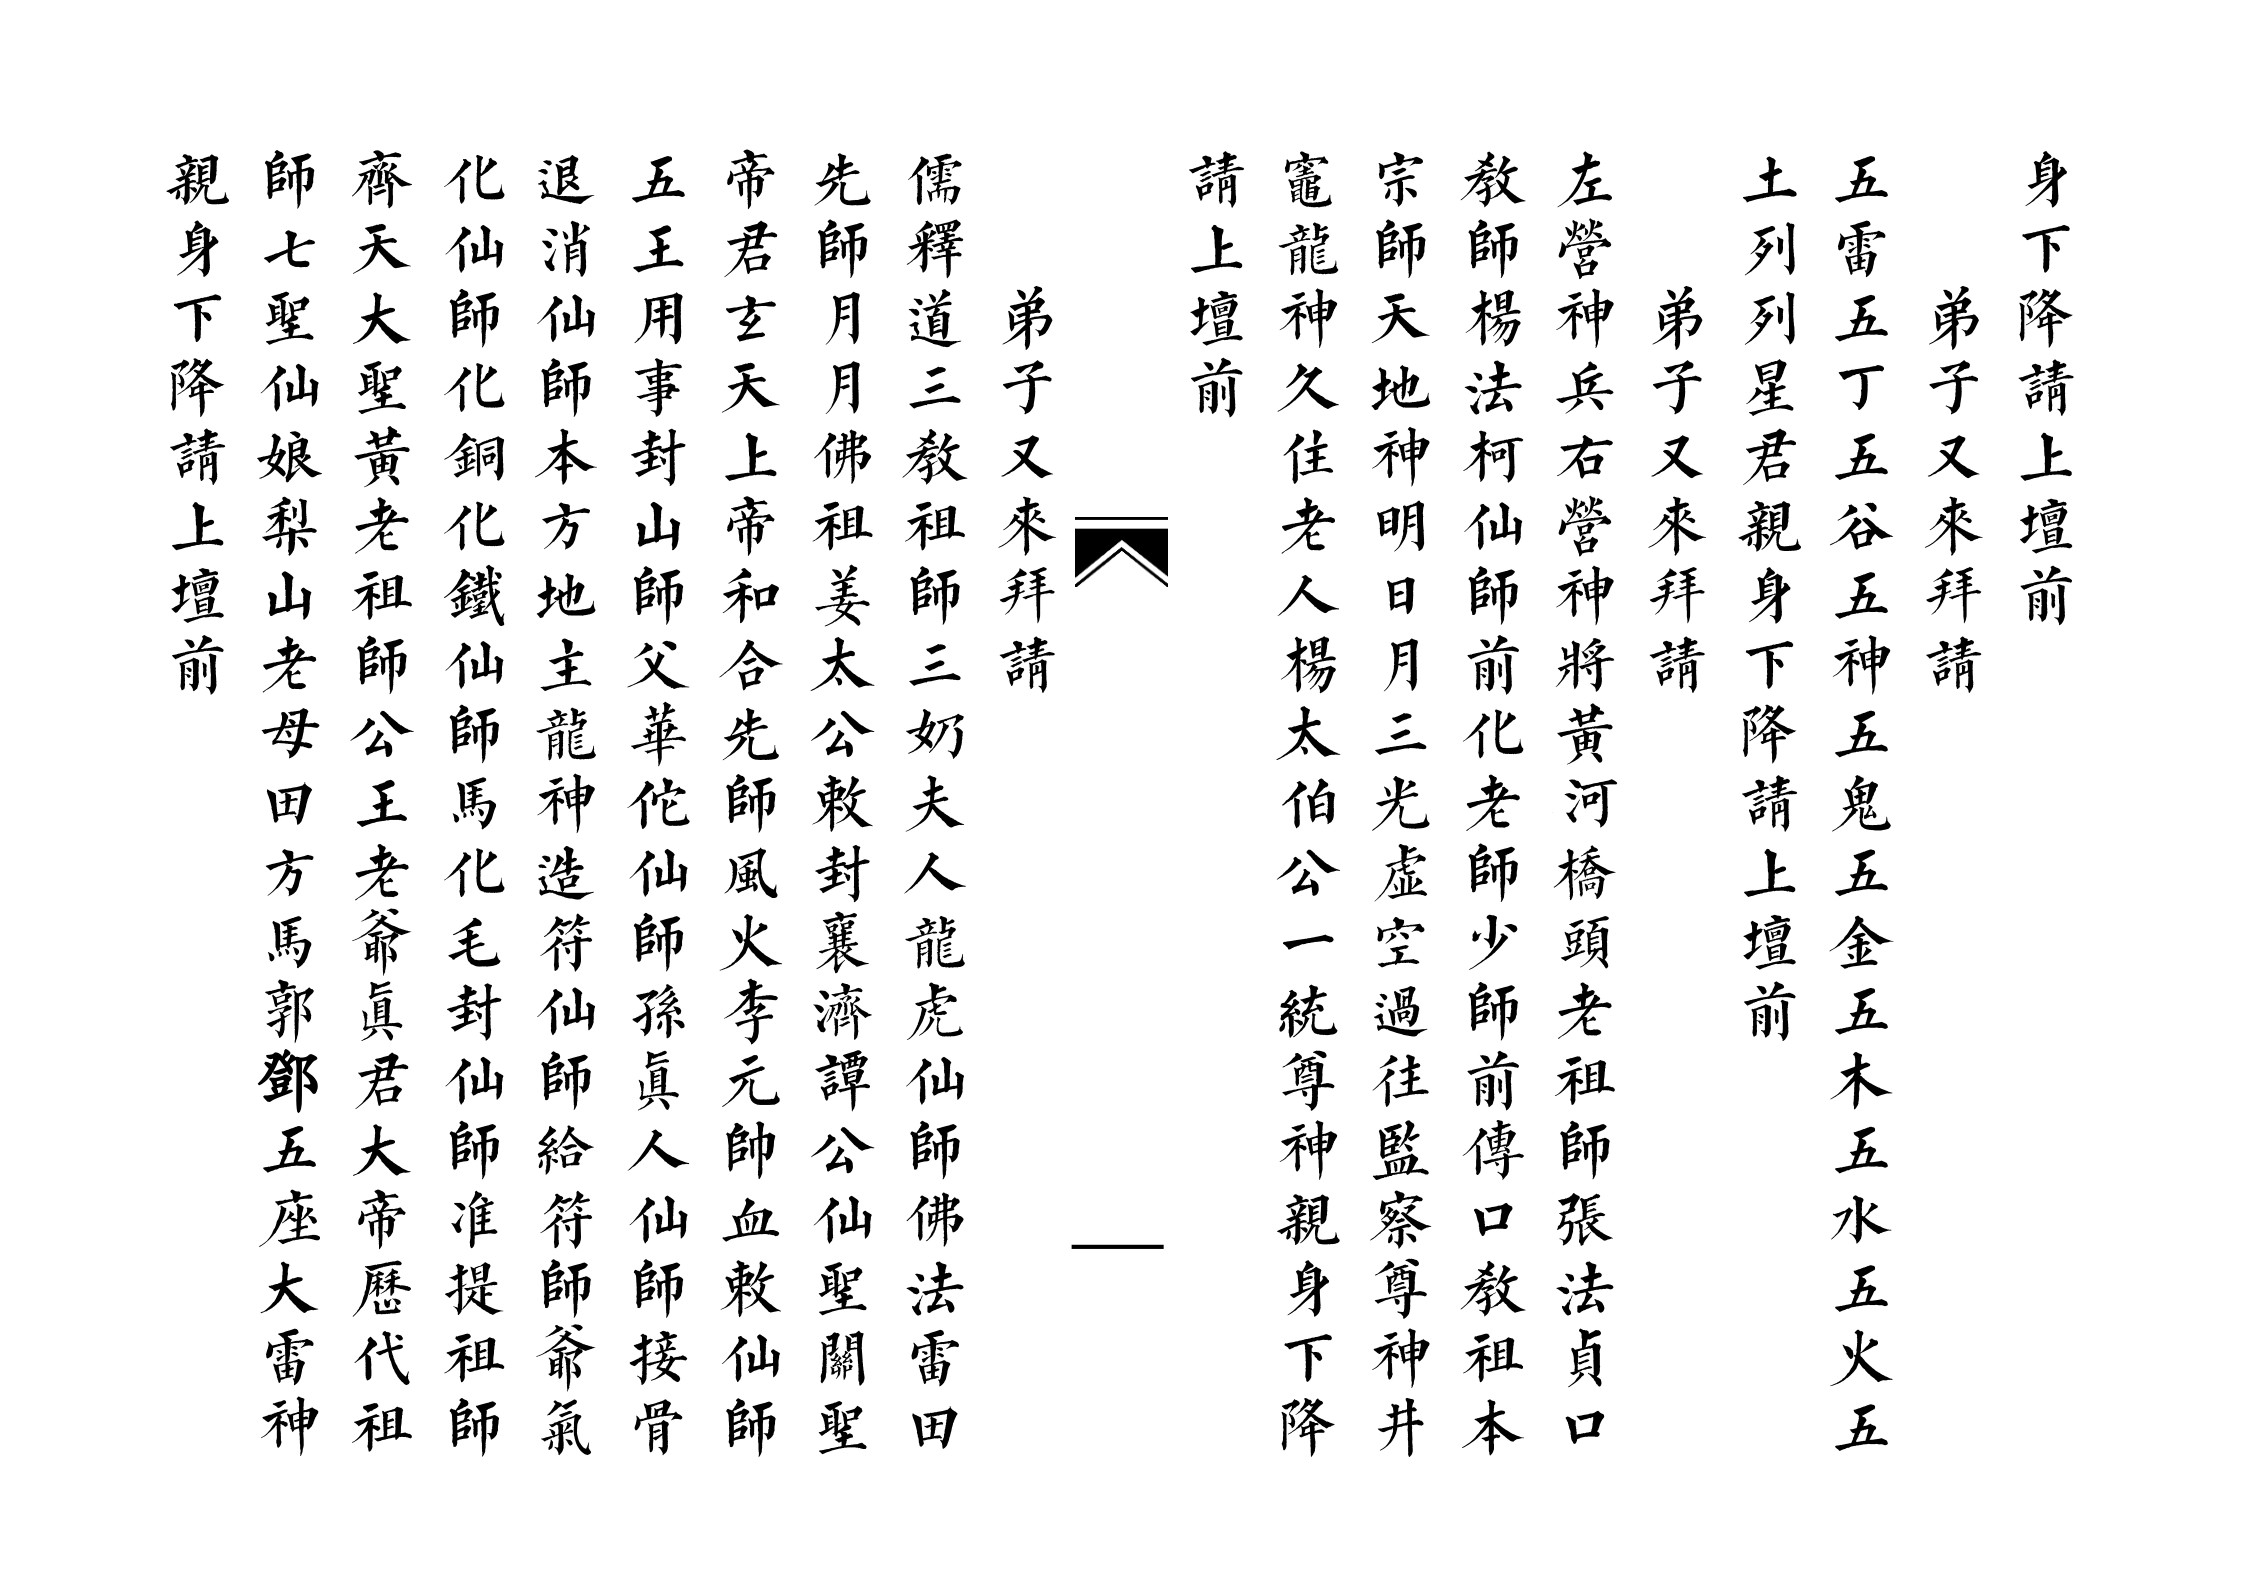 身下降請上壇前
弟子又來拜請
五雷五丁五谷五神五鬼五金五木五水五火五
土列列星君親身下降請上壇前
弟子又來拜請
左營神兵右營神將黃河橋頭老祖師張法貞口
教師楊法柯仙師前化老師少師前傳口教祖本
宗師天地神明日月三光虛空過往監察尊神井
竈龍神久住老人楊太伯公一統尊神親身下降
請上壇前
弟子又來拜請
儒釋道三教祖師三奶夫人龍虎仙師佛法雷田
先師月月佛祖姜太公敕封襄濟譚公仙聖關聖
帝君玄天上帝和合先師風火李元帥血敕仙師
五王用事封山師父華佗仙師孫眞人仙師接骨
退消仙師本方地主龍神造符仙師給符師爺氣
化仙師化銅化鐵仙師馬化毛封仙師准提祖師
齊天大聖黃老祖師公王老爺眞君大帝歷代祖
師七聖仙娘梨山老母田方馬郭鄧五座大雷神
親身下降請上壇前